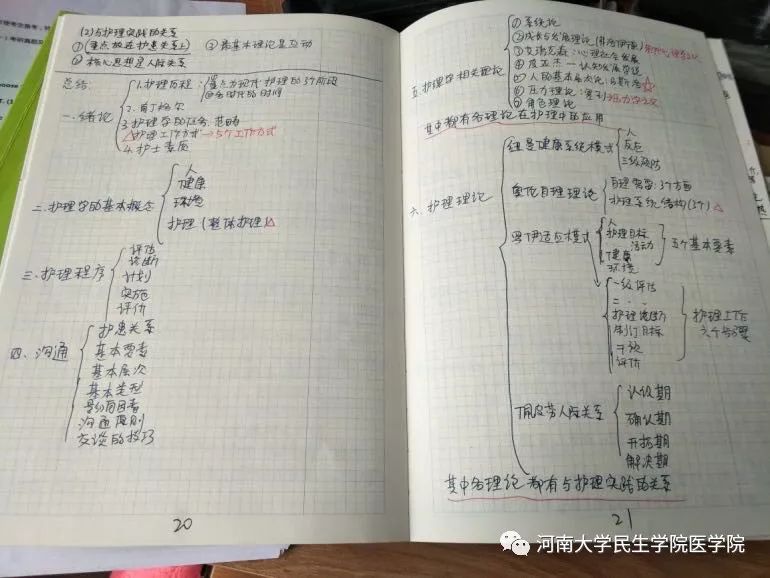 (2)与护理实践的关系
①(重点放在护患关系上) ②最基本理论是互动
③核心思想是人际关系
总结:
一、绪论
1.护理历程:
①重点为现代护理的3个阶段
②各时代的时间
2.南丁格尔
3.护理学的任务、范畴
△护理工作方式→5个工作方式
4.护士素质
二、护理学的基本概念
人
健康
环境
护理(整体护理)△
三、护理程序
评估
诊断
计划
实施
评价
四、沟通
护患关系
基本要素
基本层次
基本类型
影响因素
沟通原则
交谈的技巧
20
五、护理学相关理论
①系统论
②成长与发展理论(弗洛伊德)
③艾瑞克森:心理社会发展
④皮亚杰—认知发展学说
⑤人的基本层次论:马斯洛△
⑥压力理论:塞利→压力学之父
⑦角色理论
其中都有各理论在护理中的应用
六、护理理论
纽曼健康系统模式
人
反应
三级预防
奥伦自理理论
自理需要:3个方面
护理系统结构(3个)△
罗伊适应模式
人
护理目标
活动
健康
环境
五个基本要素
一级评估
二、、
护理诊断
制订目标
干预
评价
护理工作
六个步骤
佩皮劳人际关系
认识期
确认期
开拓期
解决期
其中各理论都有与护理实践的关系
21
河南大学民生学院医学院